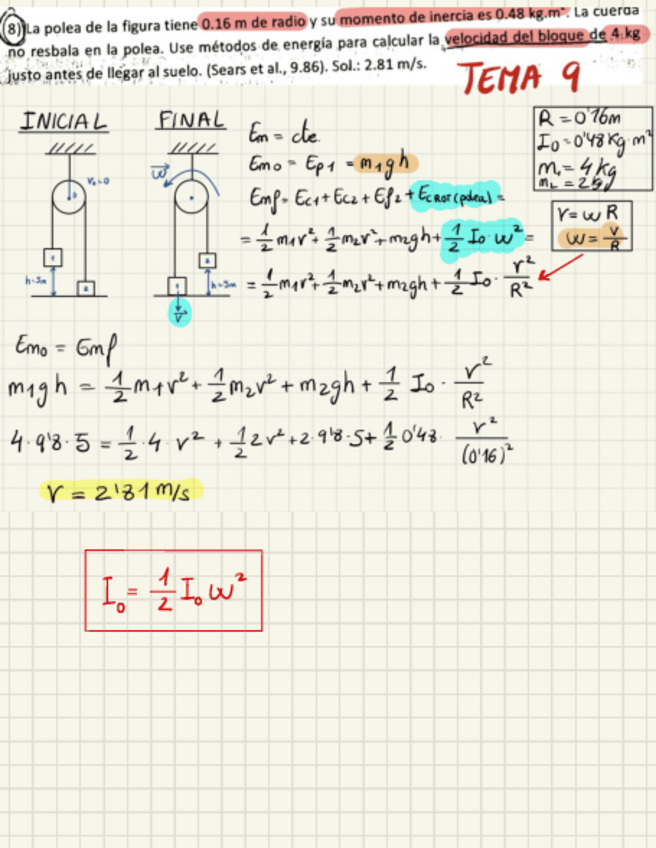 8) La polea de la figura tiene 0.16 m de radio y su momento de inercia es 0.48 kg.m². La cuerda
no resbala en la polea. Use métodos de energía para calcular la velocidad del bloque de 4 kg
justo antes de llegar al suelo. (Sears et al., 9.86). Sol.: 2.81 m/s.
TEMA 9
INICIAL
FINAL
Em = cte.
Emo = Ep1 = m1gh
Emf = Ec1 + Ec2 + Ep2 + Ec ROT (polea) =
= 1/2 m1v² + 1/2 m2v² + m2gh + 1/2 Io·w² =
= 1/2 m1v² + 1/2 m2v² + m2gh + 1/2 Io · v²/R²
R = 0'16m
Io = 0'48 Kg·m²
m1 = 4 kg
m2 = 2 kg
v = w R
w = v/R
w
v0=0
1
2
h=5m
2
1
h=5m
v
Emo = Emf
m1gh = 1/2 m1v² + 1/2 m2v² + m2gh + 1/2 Io · v²/R²
4·9'8·5 = 1/2·4 v² + 1/2 2v² + 2·9'8·5 + 1/2 0'48 · v²/(0'16)²
v = 2'81 m/s
Io = 1/2 Io w²